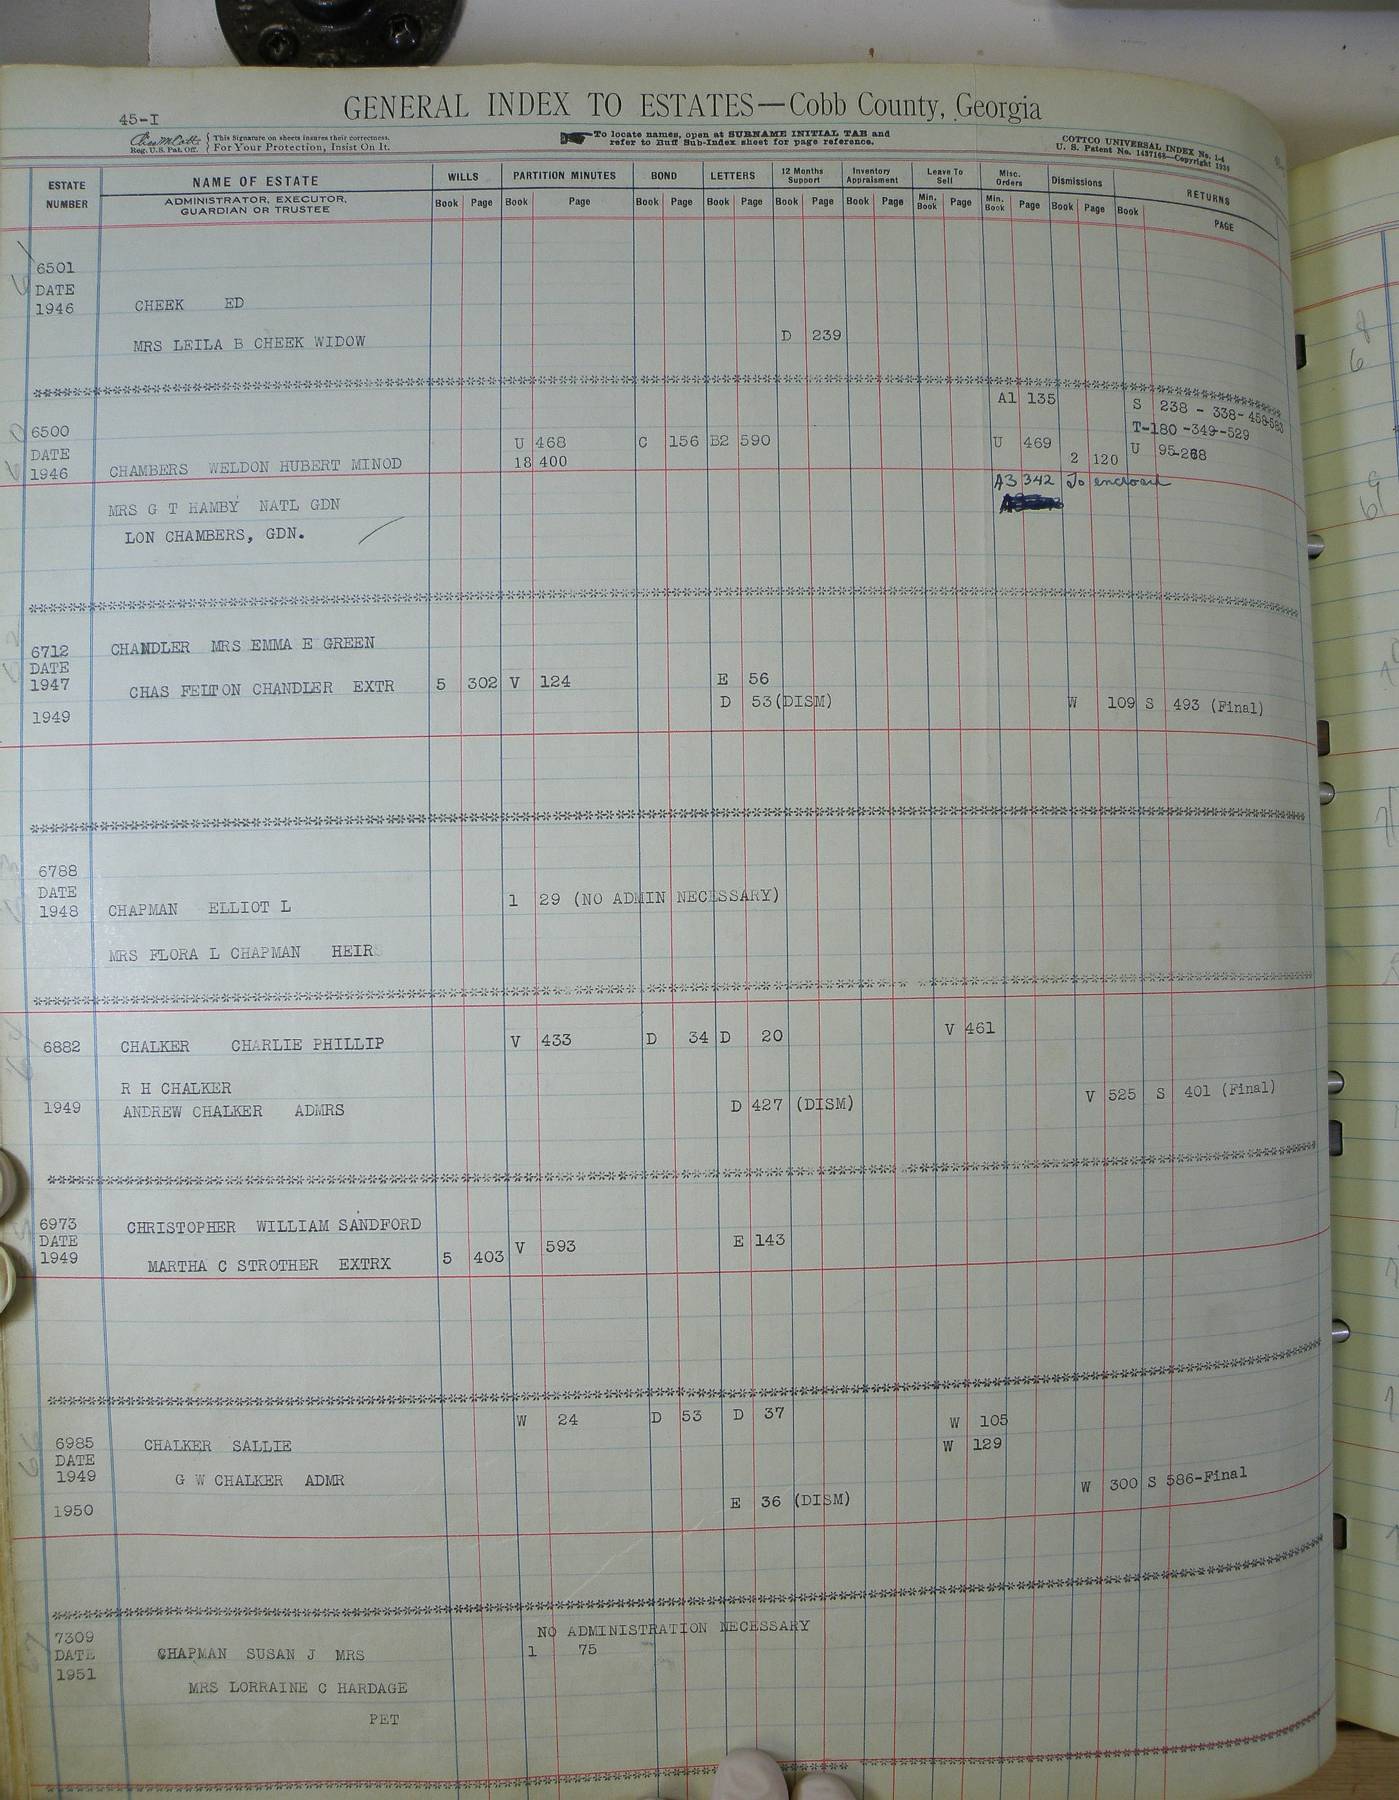 45-I
GENERAL INDEX TO ESTATES—Cobb County, Georgia
Reg. U.S. Pat. Off.
This Signature on sheets insures their correctness.
For Your Protection, Insist On It.
To locate names, open at SURNAME INITIAL TAB and
refer to Buff Sub-Index sheet for page reference.
COTTCO UNIVERSAL INDEX No. 1-4
U. S. Patent No. 1437168—Copyright 1930
ESTATE NUMBER
NAME OF ESTATE
ADMINISTRATOR, EXECUTOR,
GUARDIAN OR TRUSTEE
WILLS PARTITION MINUTES BOND LETTERS 12 Months Support Inventory Appraisment Leave To Sell Misc. Orders Dismissions RETURNS
Book Page Book Page Book Page Book Page Book Page Book Page Min. Book Page Min. Book Page Book Page Book PAGE
6501
DATE
1946 CHEEK ED
MRS LEILA B CHEEK WIDOW D 239
A1 135 S 238 - 338- 458-583
6500 T-180 -349--529
DATE U 468 C 156 B2 590 U 469 U 95-268
1946 CHAMBERS WELDON HUBERT MINOD 18 400 2 120
A3 342 To encroach
MRS G T HAMBY NATL GDN
LON CHAMBERS, GDN.
6712 CHANDLER MRS EMMA E GREEN
DATE
1947 CHAS FELTON CHANDLER EXTR 5 302 V 124 E 56
1949 D 53(DISM) W 109 S 493 (Final)
6788
DATE
1948 CHAPMAN ELLIOT L 1 29 (NO ADMIN NECESSARY)
MRS FLORA L CHAPMAN HEIRS
6882 CHALKER CHARLIE PHILLIP V 433 D 34 D 20 V 461
R H CHALKER
1949 ANDREW CHALKER ADMRS D 427 (DISM) V 525 S 401 (Final)
6973 CHRISTOPHER WILLIAM SANDFORD
DATE
1949 MARTHA C STROTHER EXTRX 5 403 V 593 E 143
W 24 D 53 D 37 W 105
6985 CHALKER SALLIE W 129
DATE
1949 G W CHALKER ADMR W 300 S 586-Final
1950 E 36 (DISM)
7309 NO ADMINISTRATION NECESSARY
DATE CHAPMAN SUSAN J MRS 1 75
1951
MRS LORRAINE C HARDAGE
PET